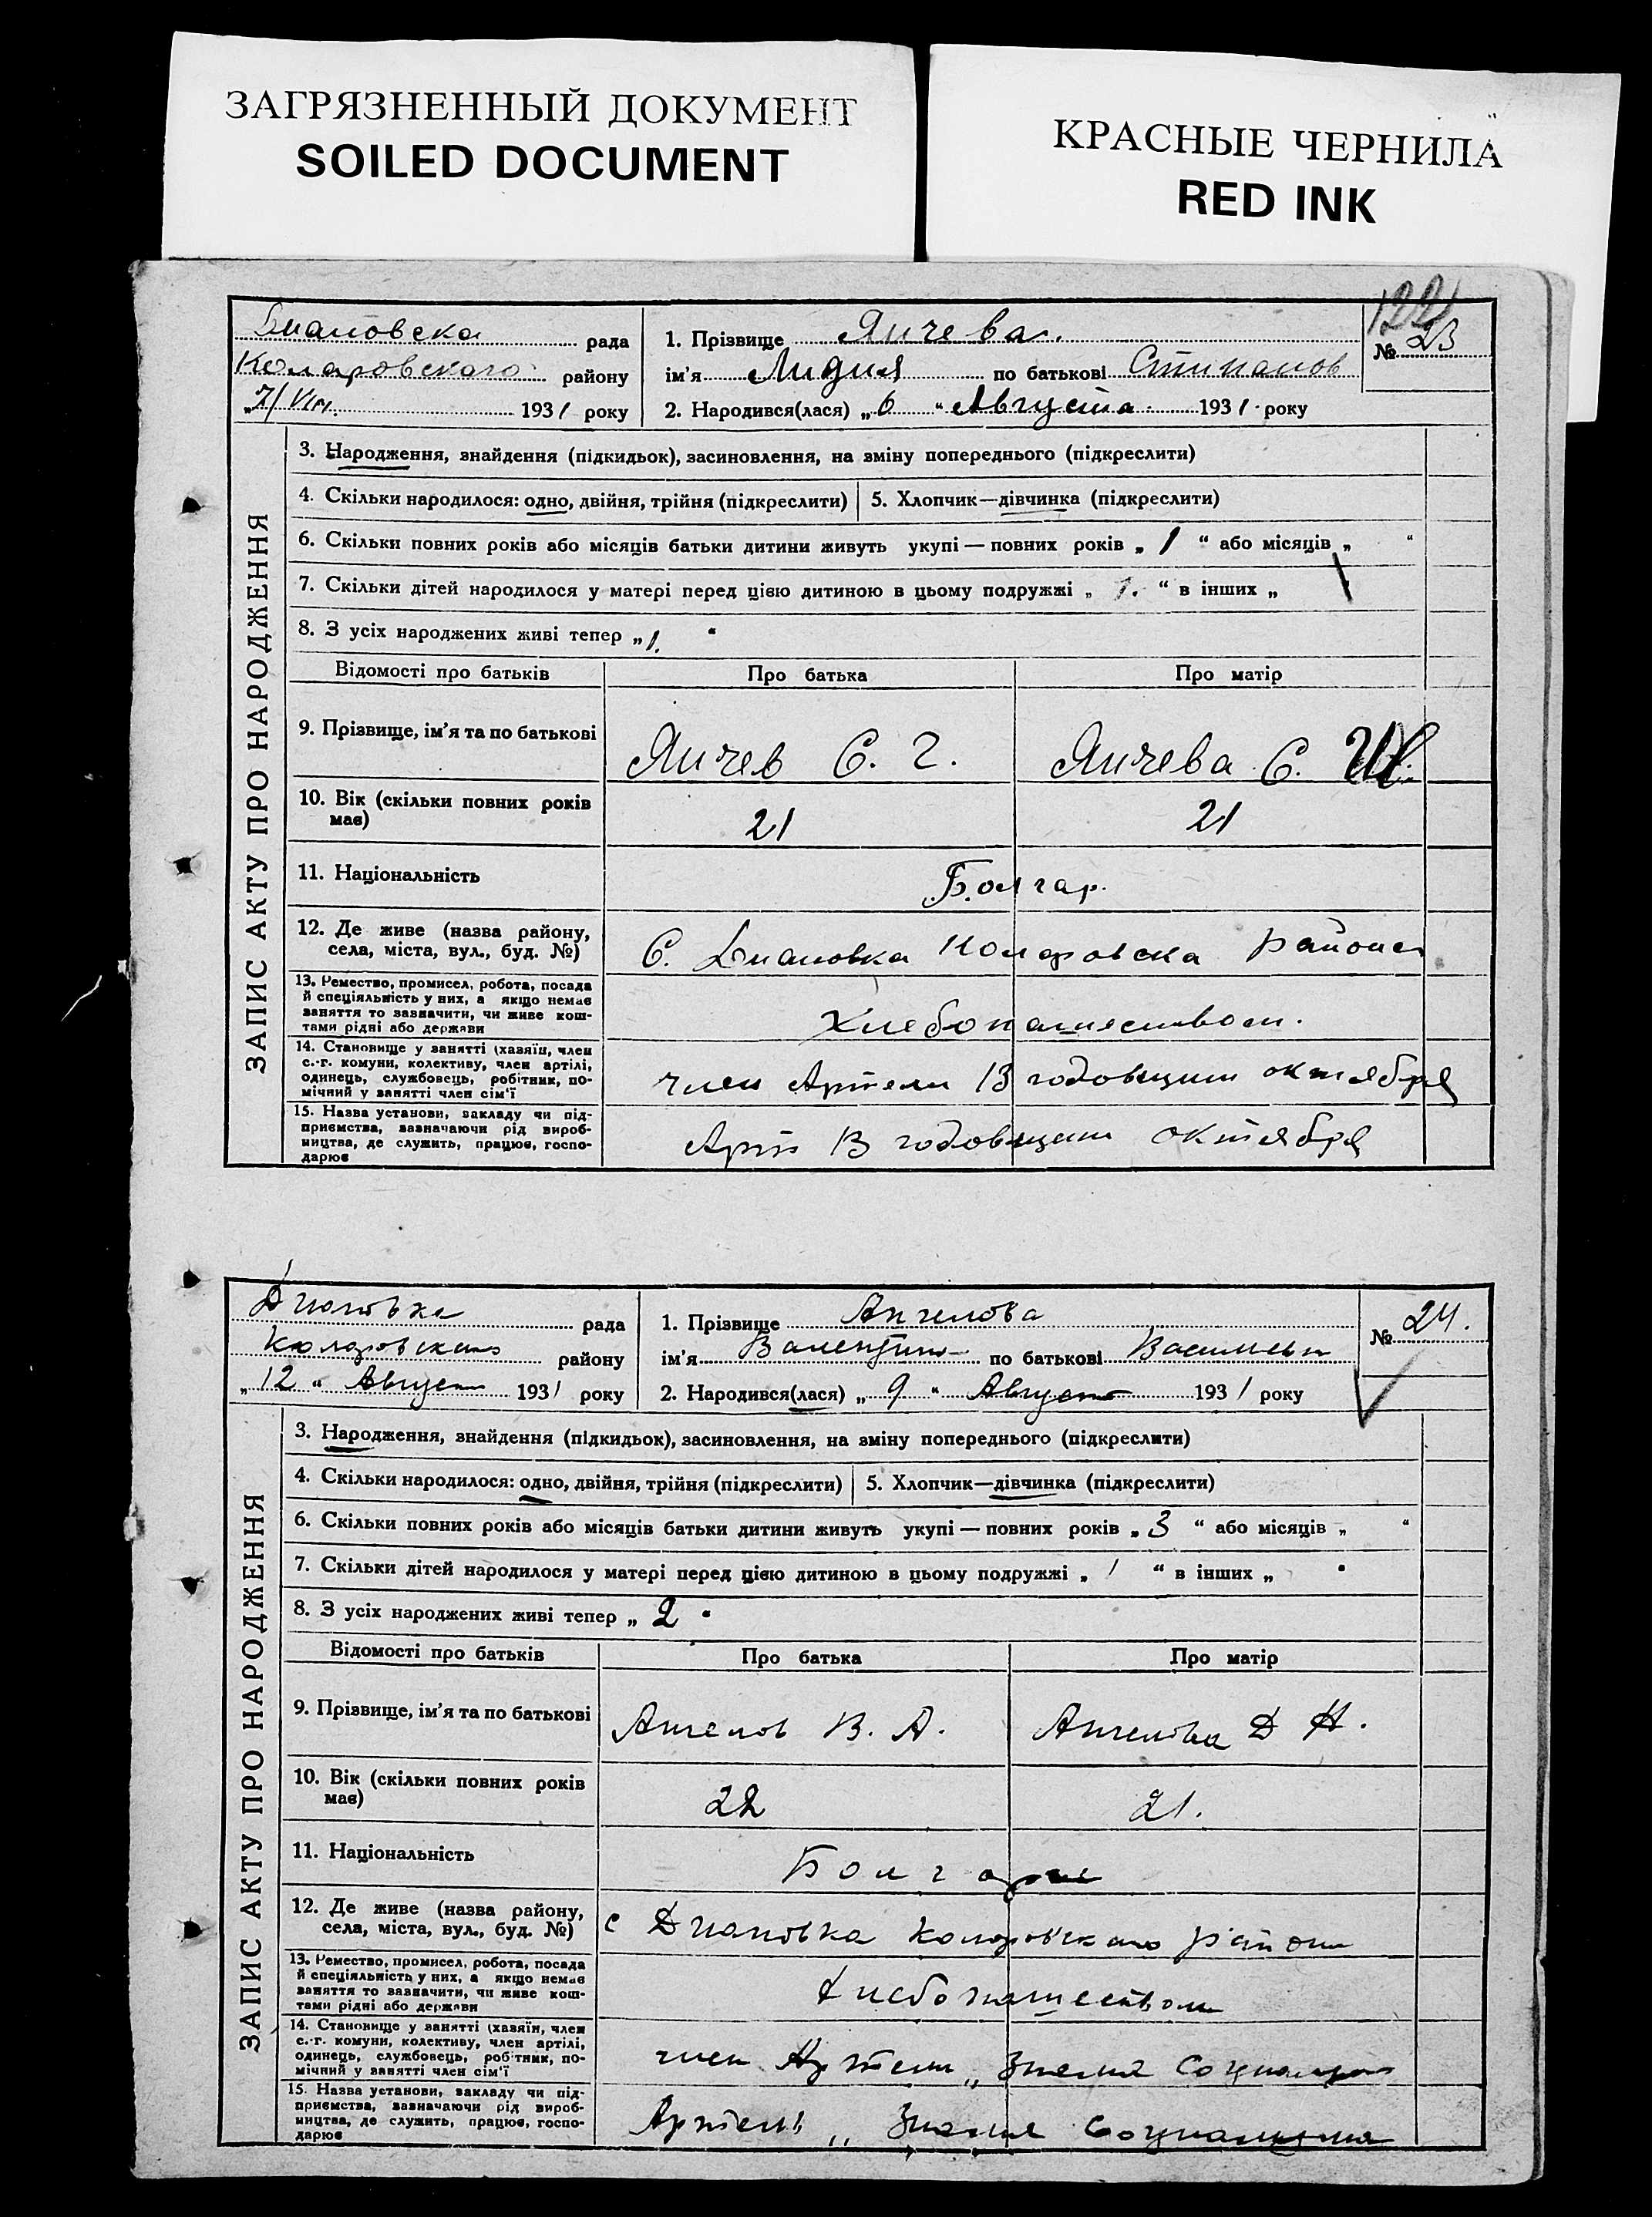 ЗАГРЯЗНЕННЫЙ ДОКУМЕНТ
SOILED DOCUMENT
КРАСНЫЕ ЧЕРНИЛА
RED INK
122
Диановска рада
Коларовского району
„7/VIII 1931 року
1. Прізвище Янчева.
ім'я Лидия по батькові Стипанов
2. Народився(лася) „6“ Августа 1931 року
№ 23
ЗАПИС АКТУ ПРО НАРОДЖЕННЯ
3. Народження, знайдення (підкидьок), засиновлення, на зміну попереднього (підкреслити)
4. Скільки народилося: одно, двійня, трійня (підкреслити) 5. Хлопчик—дівчинка (підкреслити)
6. Скільки повних років або місяців батьки дитини живуть укупі — повних років „1“ або місяців „ “
7. Скільки дітей народилося у матері перед цією дитиною в цьому подружжі „1.“ в інших „ “
8. З усіх народжених живі тепер „1.“
Відомості про батьків Про батька Про матір
9. Прізвище, ім'я та по батькові Янчев С. Г. Янчева С.
10. Вік (скільки повних років має) 21 21
11. Національність Болгар.
12. Де живе (назва району, села, міста, вул., буд. №) С. Диановка Коларовска района
13. Ремество, промисел, робота, посада
й спеціяльність у них, а якщо немає
заняття то зазначити, чи живе кош-
тами рідні або держави
Хлебопашеством.
14. Становище у занятті (хазяїн, член
с.-г. комуни, колективу, член артілі,
одинець, службовець, робітник, по-
мічний у занятті член сім'ї
член Артели 13 годовщини октября
15. Назва установи, закладу чи під-
приємства, зазначаючи рід вироб-
ництва, де служить, працює, госпо-
дарює
Арт 13 годовщини октября
Диановка рада
Коларовского району
„12“ Август 1931 року
1. Прізвище Ангелова
ім'я Валентина по батькові Васильевн
2. Народився(лася) „9“ Августа 1931 року
№ 24.
ЗАПИС АКТУ ПРО НАРОДЖЕННЯ
3. Народження, знайдення (підкидьок), засиновлення, на зміну попереднього (підкреслити)
4. Скільки народилося: одно, двійня, трійня (підкреслити) 5. Хлопчик—дівчинка (підкреслити)
6. Скільки повних років або місяців батьки дитини живуть укупі — повних років „3“ або місяців „ “
7. Скільки дітей народилося у матері перед цією дитиною в цьому подружжі „1“ в інших „ “
8. З усіх народжених живі тепер „2“
Відомості про батьків Про батька Про матір
9. Прізвище, ім'я та по батькові Ангелов В. А. Ангелова Д Н.
10. Вік (скільки повних років має) 22 21.
11. Національність Болгарие
12. Де живе (назва району, села, міста, вул., буд. №) с Диановка Коларовского район
13. Ремество, промисел, робота, посада
й спеціяльність у них, а якщо немає
заняття то зазначити, чи живе кош-
тами рідні або держави
Хлебопашеством
14. Становище у занятті (хазяїн, член
с.-г. комуни, колективу, член артілі,
одинець, службовець, робітник, по-
мічний у занятті член сім'ї
член Артели „Знамя
15. Назва установи, закладу чи під-
приємства, зазначаючи рід вироб-
ництва, де служить, працює, госпо-
дарює
Артель „Знамя Социализма